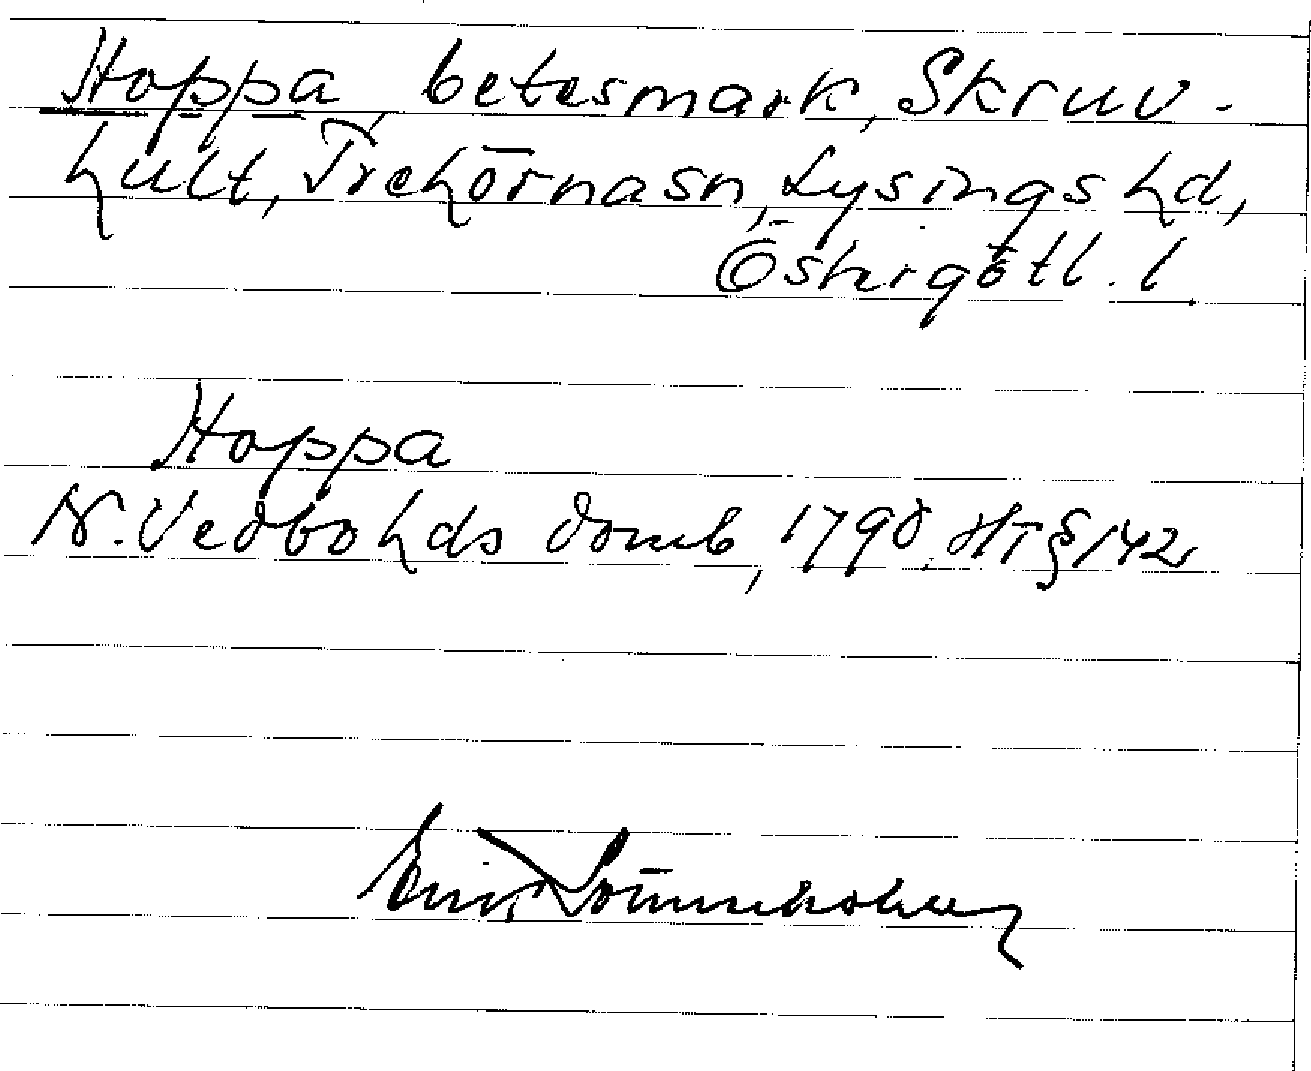 Hoppa, betesmark, Skruv-
hult, Trehörnasn, Lysings hd,
Östergötl. l.
Hoppa
N. Vedbo hds domb, 1798, HT § 142
Erik